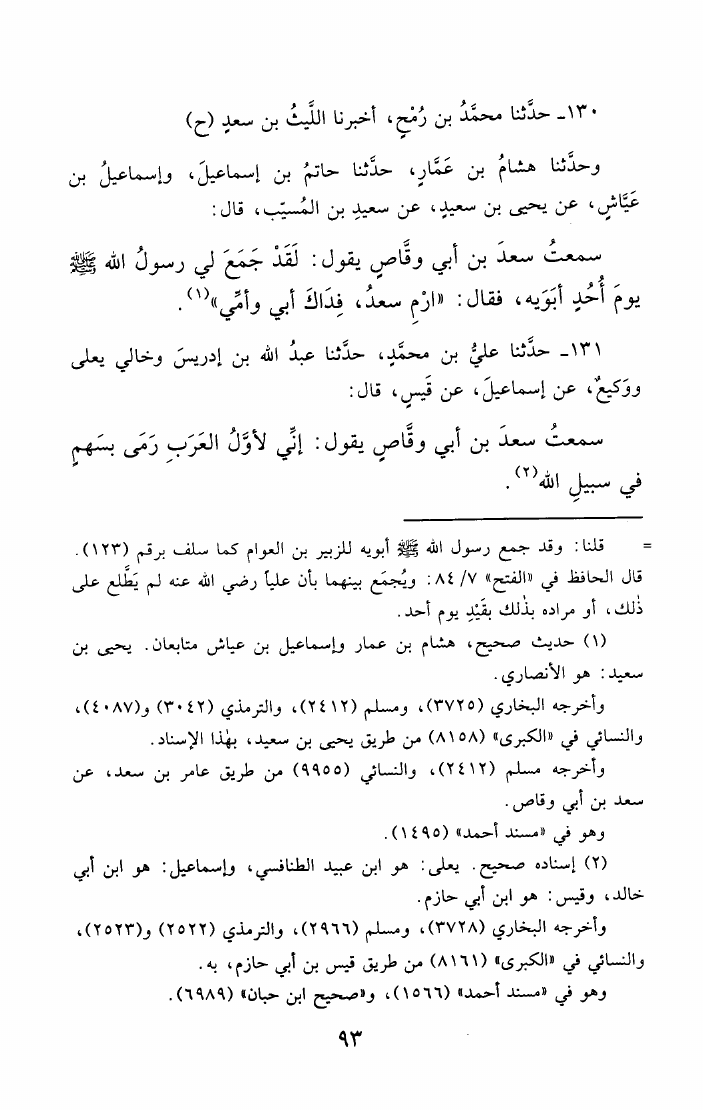 ١٣٠ـ حدَّثنا محمَّدُ بن رُمْحٍ، أخبرنا اللَّيثُ بن سعدٍ (ح)
وحدَّثنا هشامُ بن عَمَّارٍ، حدَّثنا حاتمُ بن إسماعيلَ، وإسماعيلُ بن
عَيَّاشٍ، عن يحيى بن سعيدٍ، عن سعيدِ بن المُسيّب، قال:
سمعتُ سعدَ بن أبي وقَّاصٍ يقول: لَقَدْ جَمَعَ لي رسولُ الله ﷺ
يومَ أُحُدٍ أبَوَيه، فقال: «ارْمِ سعدُ، فِدَاكَ أبي وأمِّي»(١).
١٣١ـ حدَّثنا عليُّ بن محمَّدٍ، حدَّثنا عبدُ الله بن إدريسَ وخالي يعلى
ووَكيعٌ، عن إسماعيلَ، عن قَيسٍ، قال:
سمعتُ سعدَ بن أبي وقَّاصٍ يقول: إنِّي لأوَّلُ العَرَبِ رَمَى بسَهمٍ
في سبيلِ الله(٢).
= قلنا: وقد جمع رسول الله ﷺ أبويه للزبير بن العوام كما سلف برقم (١٢٣).
قال الحافظ في «الفتح» ٧/ ٨٤: ويُجمَع بينهما بأن علياً رضي الله عنه لم يَطَّلع على
ذٰلك، أو مراده بذٰلك بقَيْدِ يوم أحد.
(١) حديث صحيح، هشام بن عمار وإسماعيل بن عياش متابعان. يحيى بن
سعيد: هو الأنصاري.
وأخرجه البخاري (٣٧٢٥)، ومسلم (٢٤١٢)، والترمذي (٣٠٤٢) و(٤٠٨٧)،
والنسائي في «الكبرى» (٨١٥٨) من طريق يحيى بن سعيد، بهٰذا الإسناد.
وأخرجه مسلم (٢٤١٢)، والنسائي (٩٩٥٥) من طريق عامر بن سعد، عن
سعد بن أبي وقاص.
وهو في «مسند أحمد» (١٤٩٥).
(٢) إسناده صحيح. يعلى: هو ابن عبيد الطنافسي، وإسماعيل: هو ابن أبي
خالد، وقيس: هو ابن أبي حازم.
وأخرجه البخاري (٣٧٢٨)، ومسلم (٢٩٦٦)، والترمذي (٢٥٢٢) و(٢٥٢٣)،
والنسائي في «الكبرى» (٨١٦١) من طريق قيس بن أبي حازم، به.
وهو في «مسند أحمد» (١٥٦٦)، و«صحيح ابن حبان» (٦٩٨٩).
٩٣